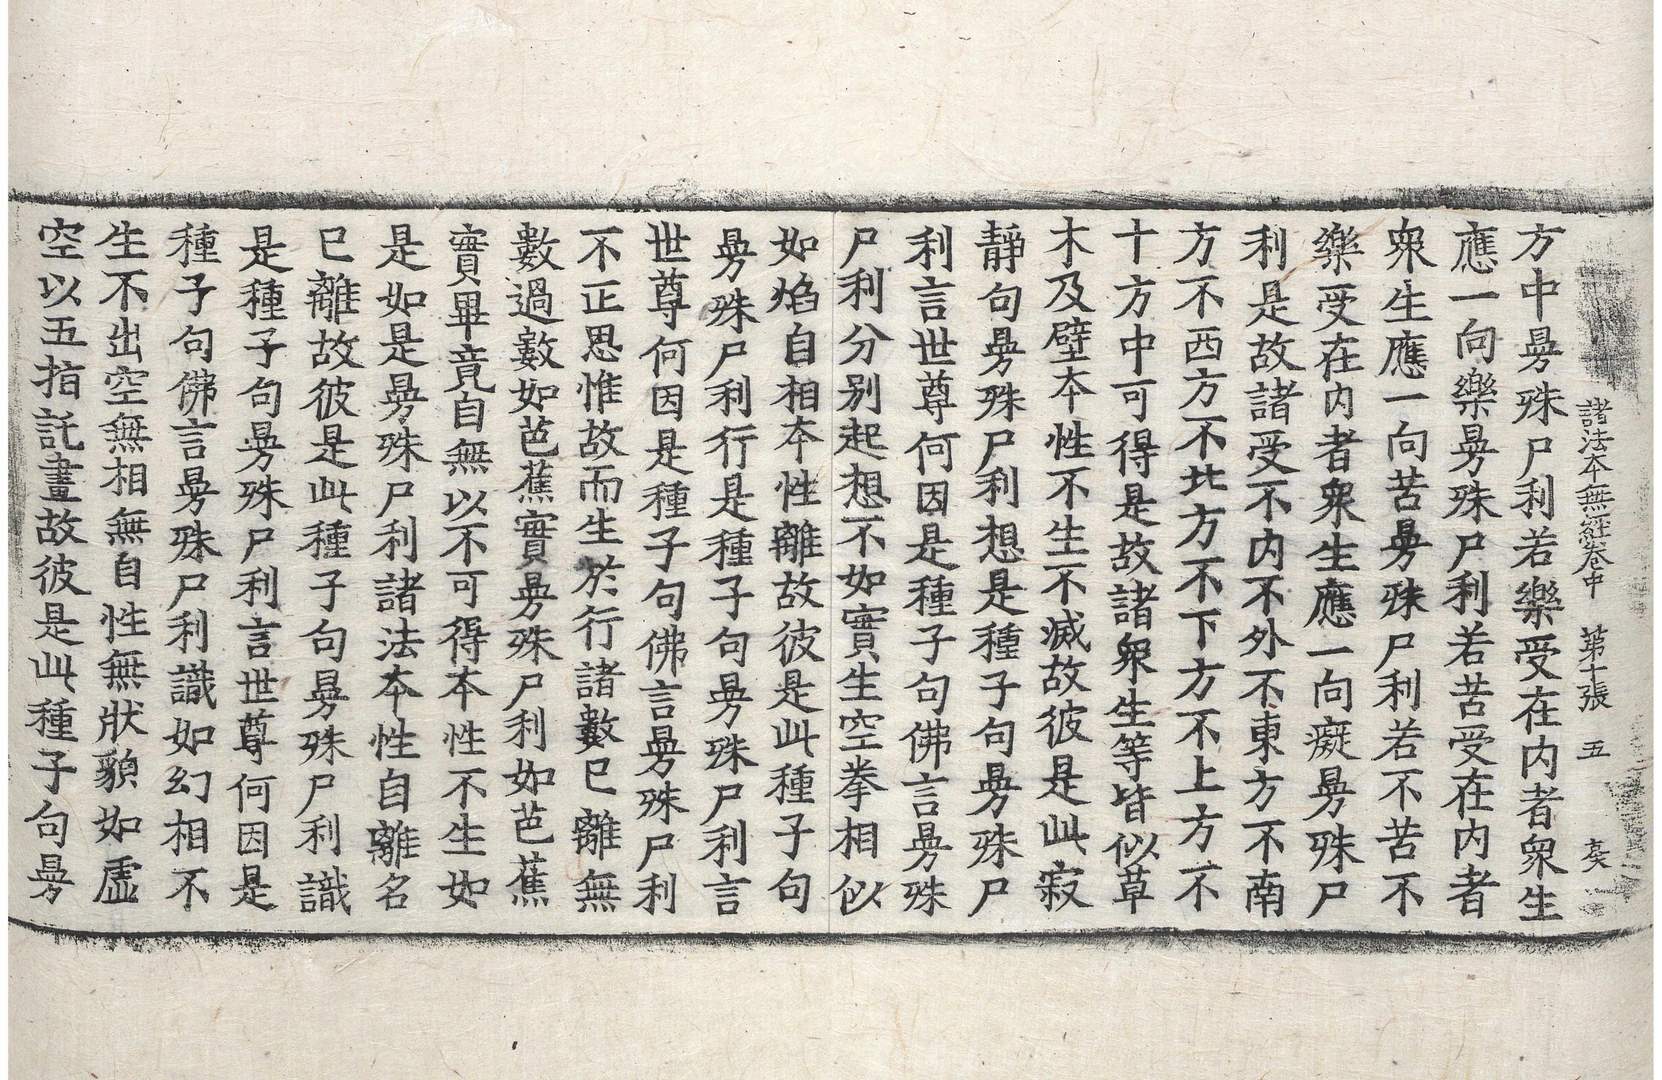 諸法本無經卷中 第十張 五
方中曼殊尸利若樂受在內者衆生
應一向樂曼殊尸利若苦受在內者
衆生應一向苦曼殊尸利若不苦不
樂受在內者衆生應一向癡曼殊尸
利是故諸受不內不外不東方不南
方不西方不北方不下方不上方不
十方中可得是故諸衆生等皆似草
木及壁本性不生不滅故彼是此寂
靜句曼殊尸利想是種子句曼殊尸
利言世尊何因是種子句佛言曼殊
尸利分別起想不如實生空拳相似
如焰自相本性離故彼是此種子句
曼殊尸利行是種子句曼殊尸利言
世尊何因是種子句佛言曼殊尸利
不正思惟故而生於行諸數已離無
數過數如芭蕉實曼殊尸利如芭蕉
實畢竟自無以不可得本性不生如
是如是曼殊尸利諸法本性自離名
已離故彼是此種子句曼殊尸利識
是種子句曼殊尸利言世尊何因是
種子句佛言曼殊尸利識如幻相不
生不出空無相無自性無狀貌如虛
空以五指託畫故彼是此種子句曼